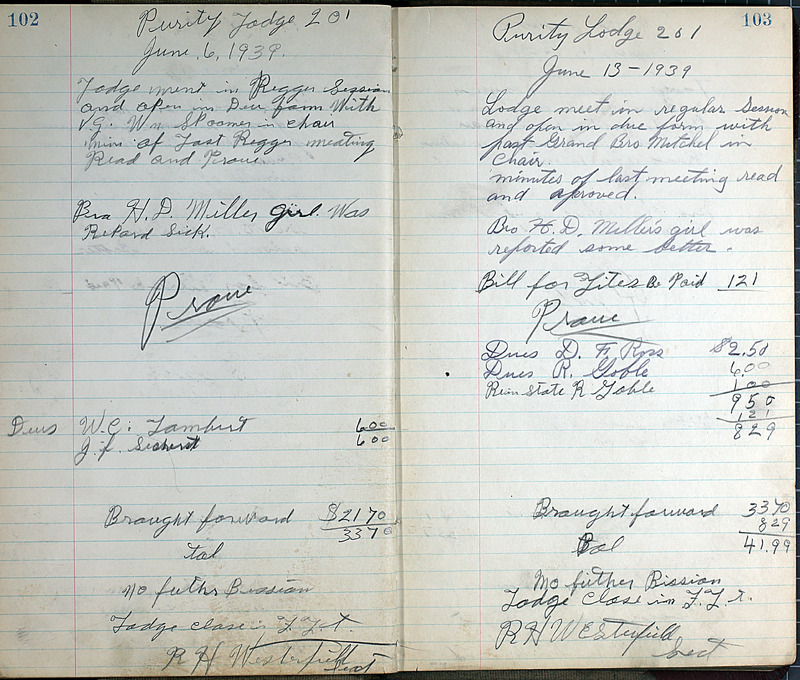 102
Purity Lodge 201
June, 6, 1939.
Lodge ment in Regger Session
and open in Deu farm With
V.G. Wn Spooner in chair
min of Last Regger meating
Read and Prove
Bro H.D. Miller girl Was
Repard Sick.
Prove
Deus W.C. Lambert 6 00
J.F. Sechrest 6 00
Braught forward $21 70
33 70
tal
no futhr Bission
Lodge close in F.L.T.
R H Westerfield
Sect
103
Purity Lodge 201
June 13-1939
Lodge meet in regular Session
and open in due form with
past Grand Bro Mitchel in
Chair.
minutes of last meeting read
and aproved.
Bro H.D. Miller's girl was
reported some better.
Bill for Lites Be Paid 121
Prove
Dues D. F. Ross $2.50
Dues R. Goble 6.00
Rein State R Goble 1 00
9 50
1 21
8 29
Braught forward 33 70
8 29
Bal 41.99
No futher Bission
Lodge Close in F.L.T.
R H Westerfield
Sect